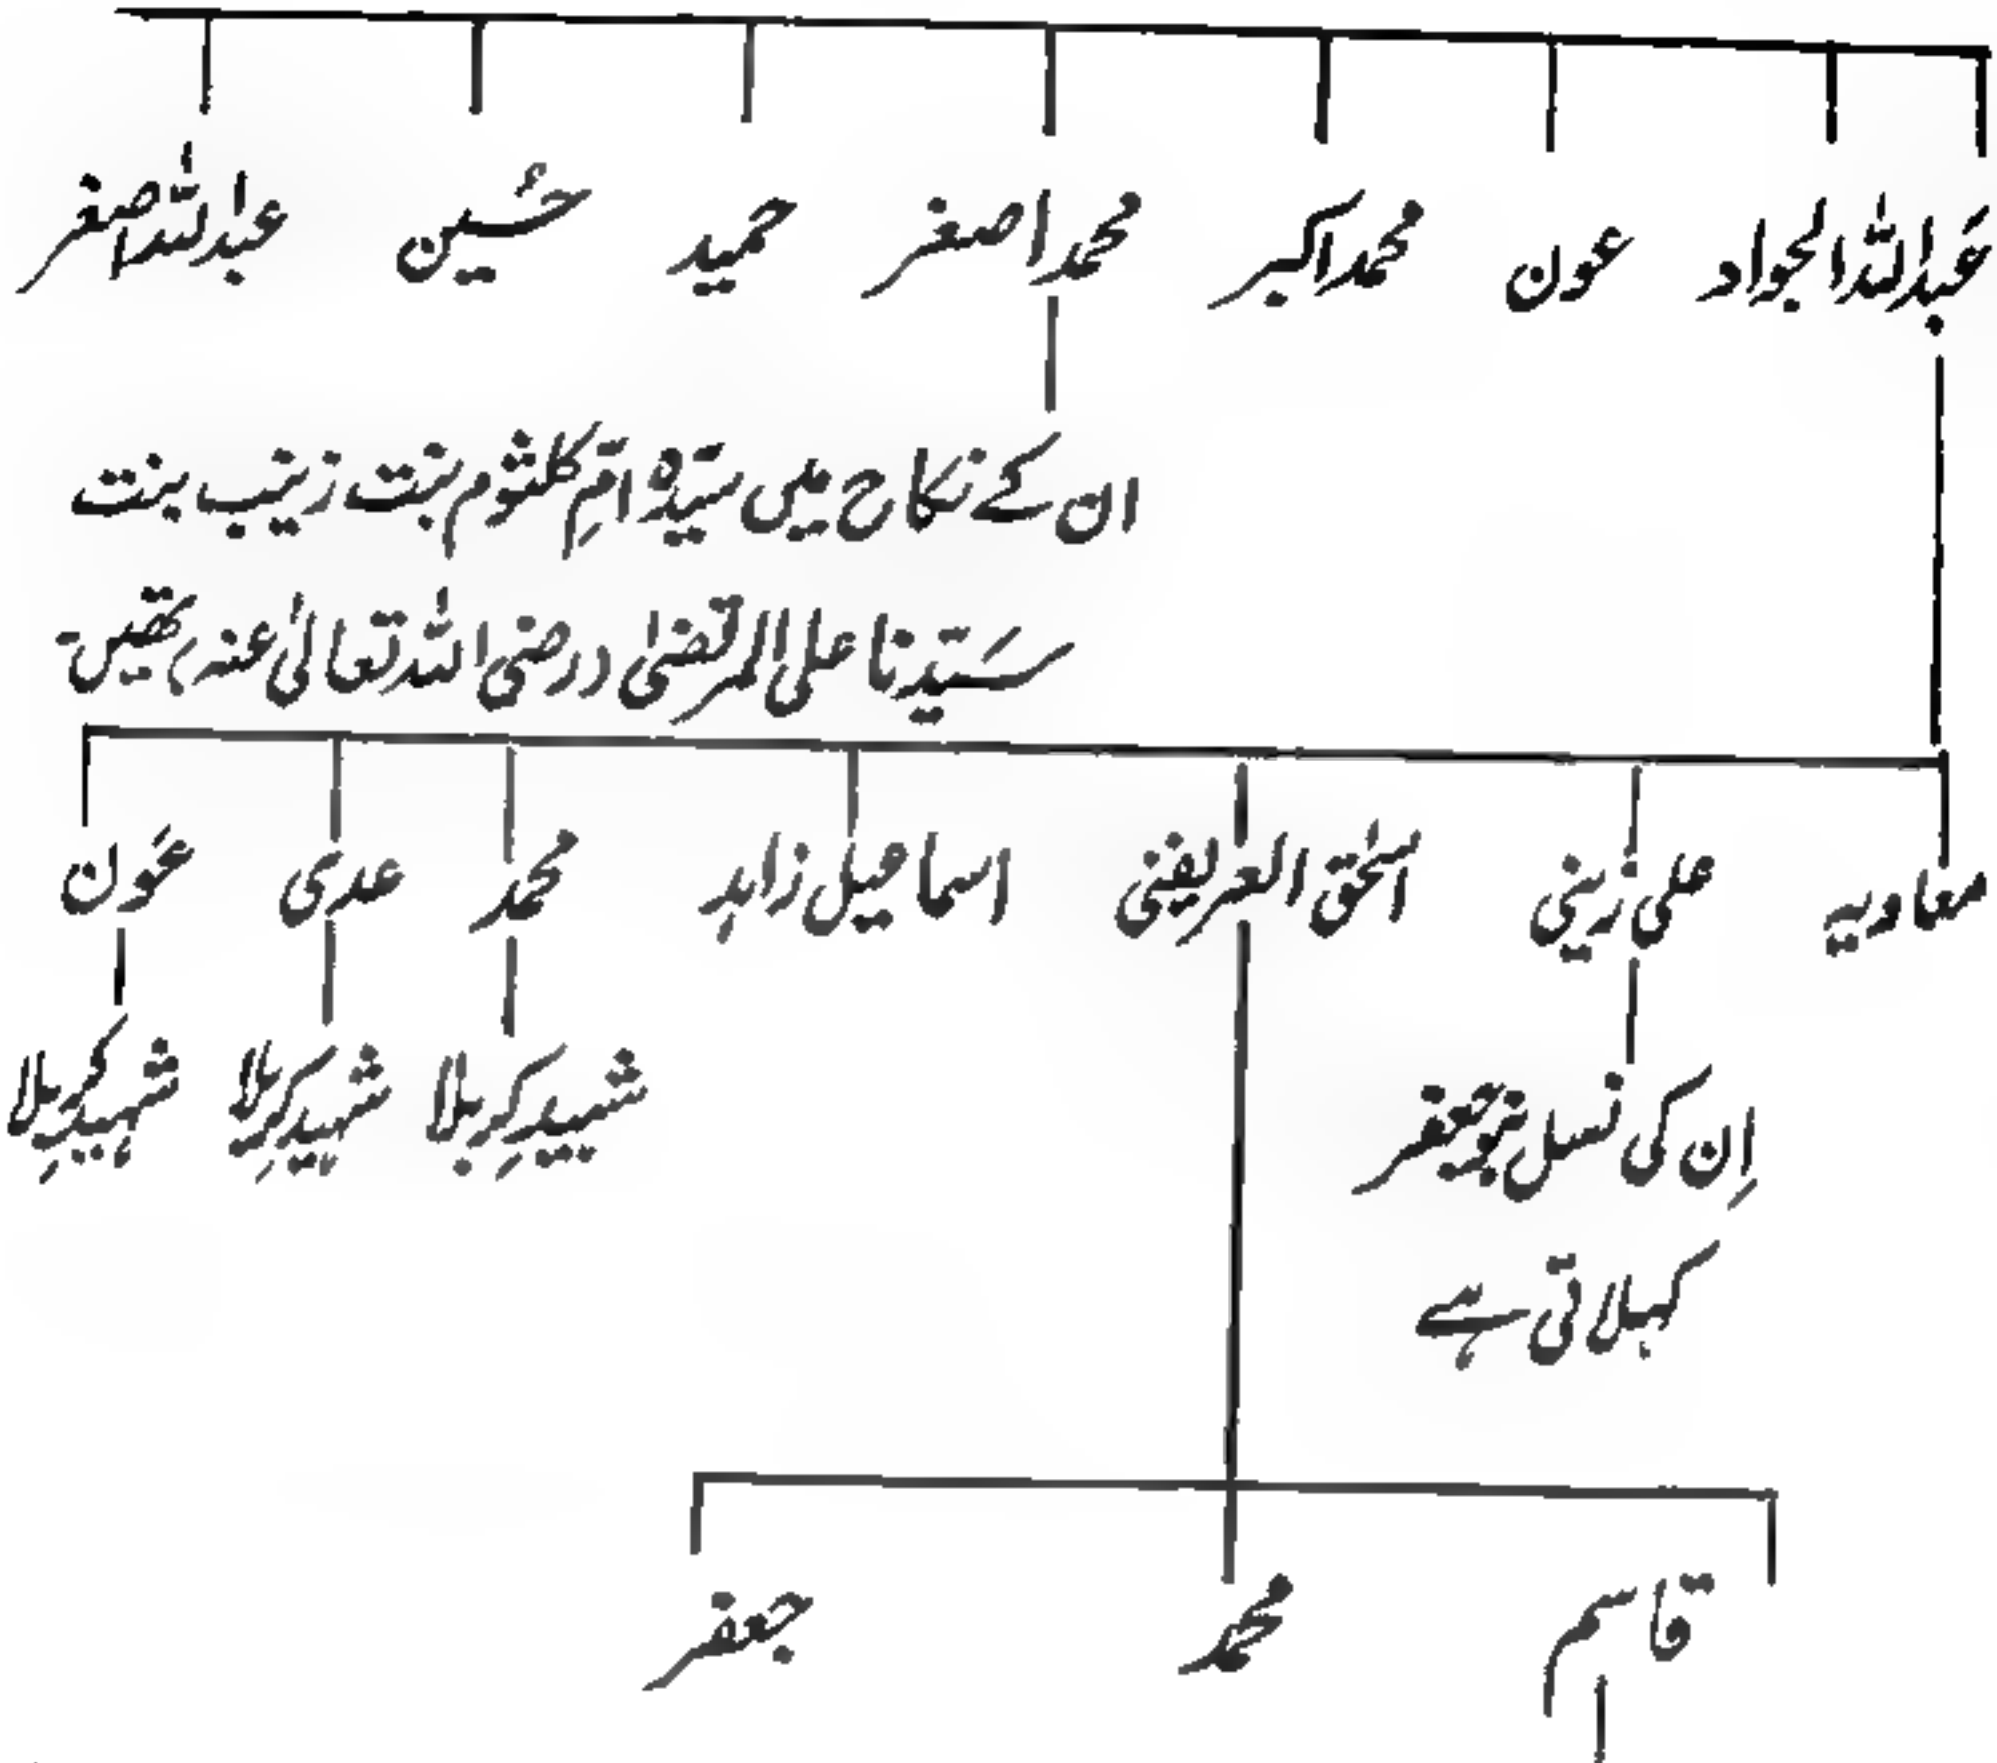 عبداللہ الجواد عون محمد اکبر محمد اصغر حمید حسین عبداللہ اصغر
ان کے نکاح میں سیّدہ امِّ کلثوم بنت زینب بنت
سیّدنا علی المرتضیٰ (رضی اللہ تعالیٰ عنہ) تھیں۔
معاویہ علی زینی اسحٰق العریضی اسماعیل زاہد محمد عدی عون
اِن کی نسل بنو جعفر شہیدِ کربلا شہیدِ کربلا شہیدِ کربلا
کہلاتی ہے
قاسم محمد جعفر